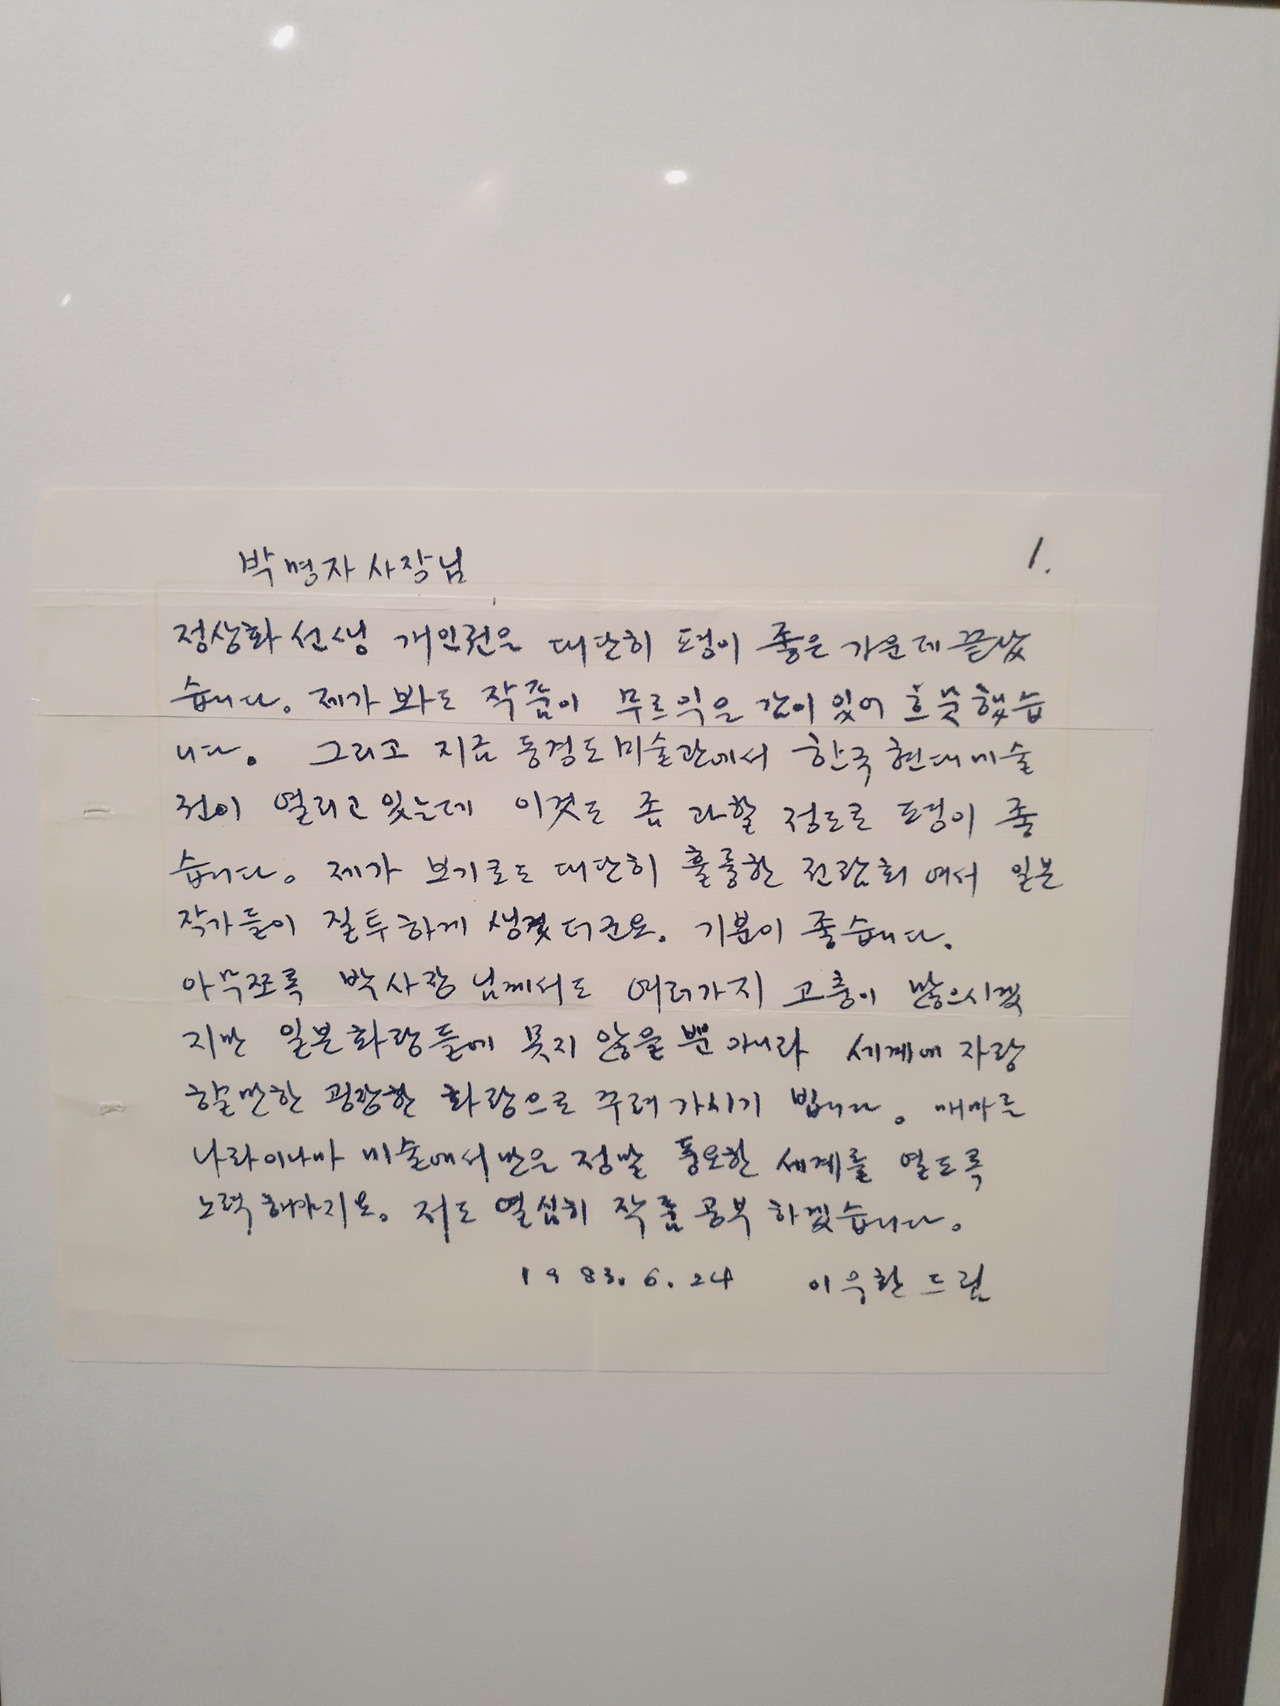 박명자 사장님
1.
정상화 선생 개인전은 대단히 평이 좋은 가운데 끝났
습니다. 제가 봐도 작품이 무르익은 감이 있어 흐뭇했습
니다. 그리고 지금 동경도미술관에서 한국현대미술
전이 열리고 있는데 이것도 좀 과할 정도로 평이 좋
습니다. 제가 보기로도 대단히 훌륭한 전람회여서 일본
작가들이 질투하게 생겼더군요. 기분이 좋습니다.
아무쪼록 박사장님께서도 여러가지 고충이 많으시겠
지만 일본화랑들에 못지 않을 뿐 아니라 세계에 자랑
할 만한 굉장한 화랑으로 꾸려 가시기 빕니다. 메마른
나라이나마 미술에서만은 정말 풍요한 세계를 열도록
노력해야지요. 저도 열심히 작품 공부 하겠습니다.
1983. 6. 24 이우환 드림